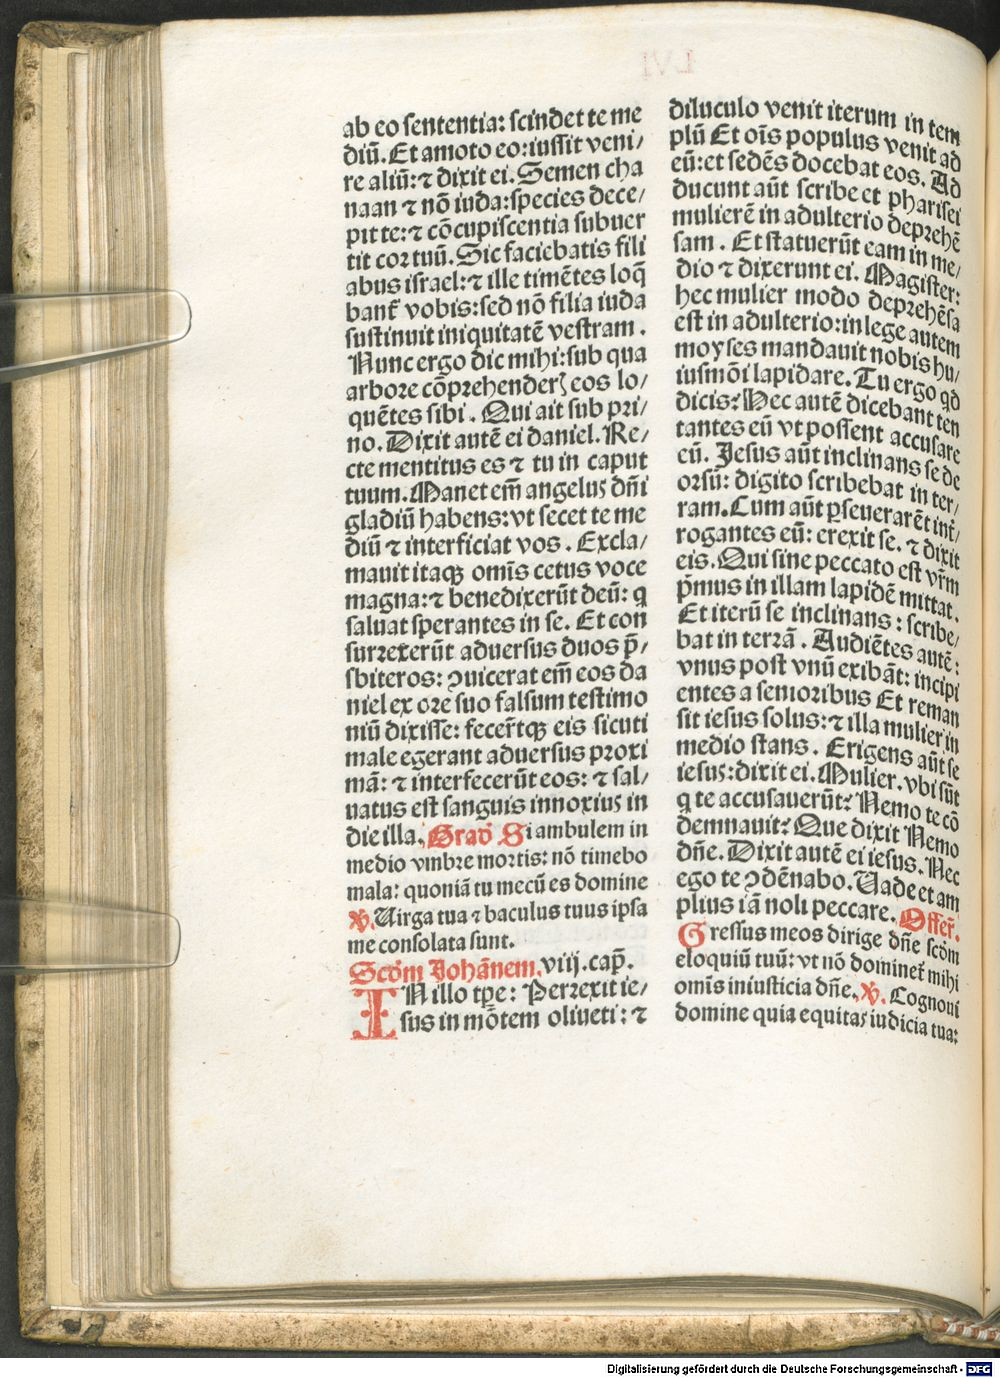 ab eo sententia: scindet te me
diū. Et amoto eo: iussit veni/
re aliū: ⁊ dixit ei. Semen cha
naan ⁊ nō iuda: species dece/
pit te: ⁊ cōcupiscentia subuer
tit cor tuū. Sic faciebatis fili
abus israel: ⁊ ille timētes loq̄
bant̄ vobis: sed nō filia iuda
sustinuit iniquitatē vestram.
Nunc ergo dic mihi: sub qua
arbore cōprehenderꝭ eos lo/
quētes sibi. Qui ait sub pri/
no. Dixit autē ei daniel. Re/
cte mentitus es ⁊ tu in caput
tuum. Manet em̄ angelus dn̄i
gladiū habens: vt secet te me
diū ⁊ interficiat vos. Excla/
mauit itaqꝫ omīs cetus voce
magna: ⁊ benedixerūt deū: q
saluat sperantes in se. Et con
surrexerūt aduersus duos p̄/
sbiteros: ꝯuicerat em̄ eos da
niel ex ore suo falsum testimo
niū dixisse: fecer̄tqꝫ eis sicuti
male egerant aduersus proxi
mā: ⁊ interfecerūt eos: ⁊ sal/
uatus est sanguis innoxius in
die illa. Grad̄ Si ambulem in
medio vmbre mortis: nō timebo
mala: quoniā tu mecū es domine
℣. Uirga tua ⁊ baculus tuus ipsa
me consolata sunt.
Scd̄m Johānem. viij. cap̄.
IN illo tp̄e: Perrexit ie/
sus in mōtem oliueti: ⁊
diluculo venit iterum in tem
plū Et oīs populus venit ad
eū: et sedēs docebat eos. Ad
ducunt aūt scribe et pharisei
mulierē in adulterio deprehē
sam. Et statuerūt eam in me/
dio ⁊ dixerunt ei. Magister:
hec mulier modo deprehēsa
est in adulterio: in lege autem
moyses mandauit nobis hu/
iusmōi lapidare. Tu ergo qd
dicis? Hec autē dicebant ten
tantes eū vt possent accusare
eū. Jesus aūt inclinans se de
orsū: digito scribebat in ter/
ram. Cum aūt ꝑseuerarēt int̄/
rogantes eū: erexit se. ⁊ dixit
eis. Qui sine peccato est vr̄m
p̄mus in illam lapidē mittat.
Et iterū se inclinans: scribe/
bat in terrā. Audiētes autē:
vnus post vnū exibāt: incipi
entes a senioribus Et reman
sit iesus solus: ⁊ illa mulier in
medio stans. Erigens aūt se
iesus: dixit ei. Mulier. vbi sūt
q te accusauerūt? Nemo te cō
demnauit? Que dixit Nemo
dn̄e. Dixit autē ei iesus. Nec
ego te ꝯdēnabo. Uade et am
plius iā noli peccare. Offer̄.
Gressus meos dirige dn̄e scd̄m
eloquiū tuū: vt nō dominet̄ mihi
omīs iniusticia dn̄e. ℣. Cognoui
domine quia equitas iudicia tua:
Digitalisierung gefördert durch die Deutsche Forschungsgemeinschaft - DFG